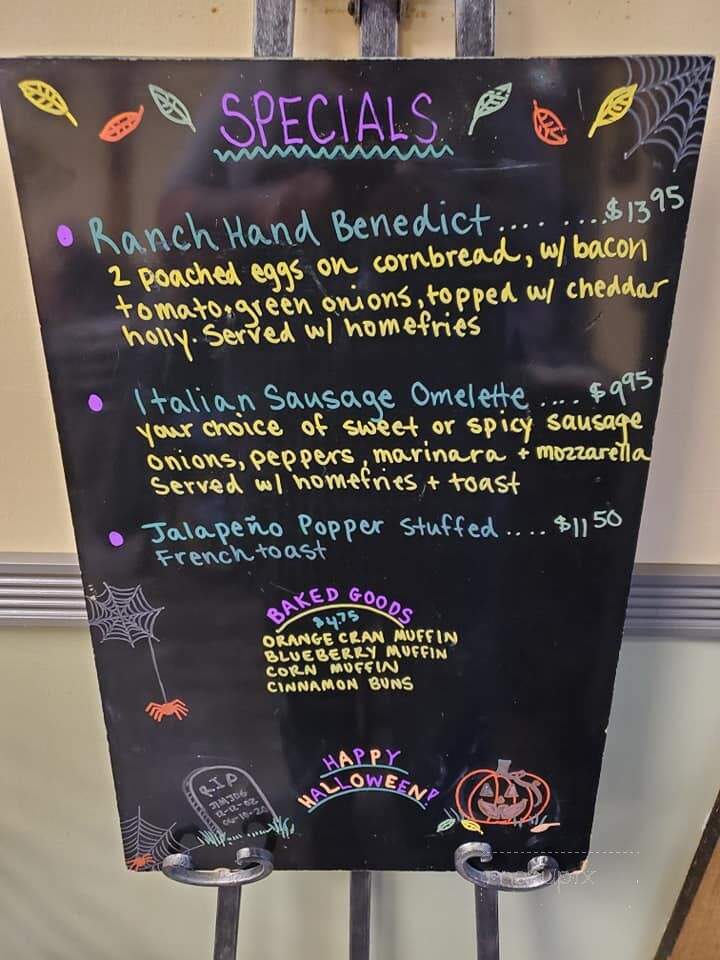 SPECIALS
Ranch Hand Benedict ........ $13.95
2 poached eggs on cornbread, w/ bacon
tomato, green onions, topped w/ cheddar
holly. Served w/ homefries
Italian Sausage Omelette .... $9.95
your choice of sweet or spicy sausage
onions, peppers, marinara + mozzarella
Served w/ homefries + toast
Jalapeño Popper Stuffed .... $11.50
French toast
BAKED GOODS
$4.75
ORANGE CRAN MUFFIN
BLUEBERRY MUFFIN
CORN MUFFIN
CINNAMON BUNS
HAPPY
HALLOWEEN!
R.I.P